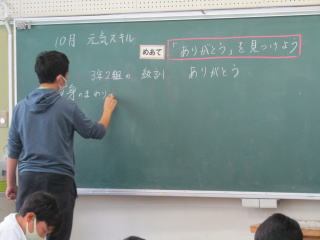 10月 元気スキル
めあて 「ありがとう」を見つけよう
3年2組の 役割 ありがとう
身のまわりの